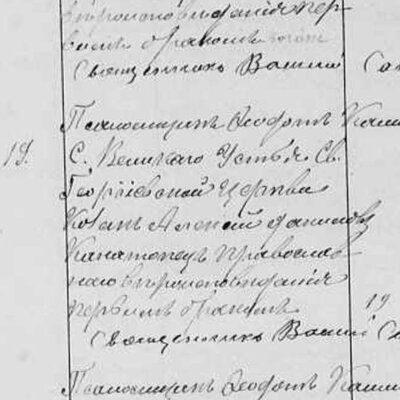 вѣроисповѣданія пер-
вымъ бракомъ
Священникъ Василій
Псаломщикъ Ѳеодотъ
19. С. Великаго Устья Св.
Георгіевской Церкви
Алексій Даниловъ
православ-
наго вѣроисповѣданія
первымъ бракомъ 19
Священникъ Василій
Псаломщикъ Ѳеодотъ